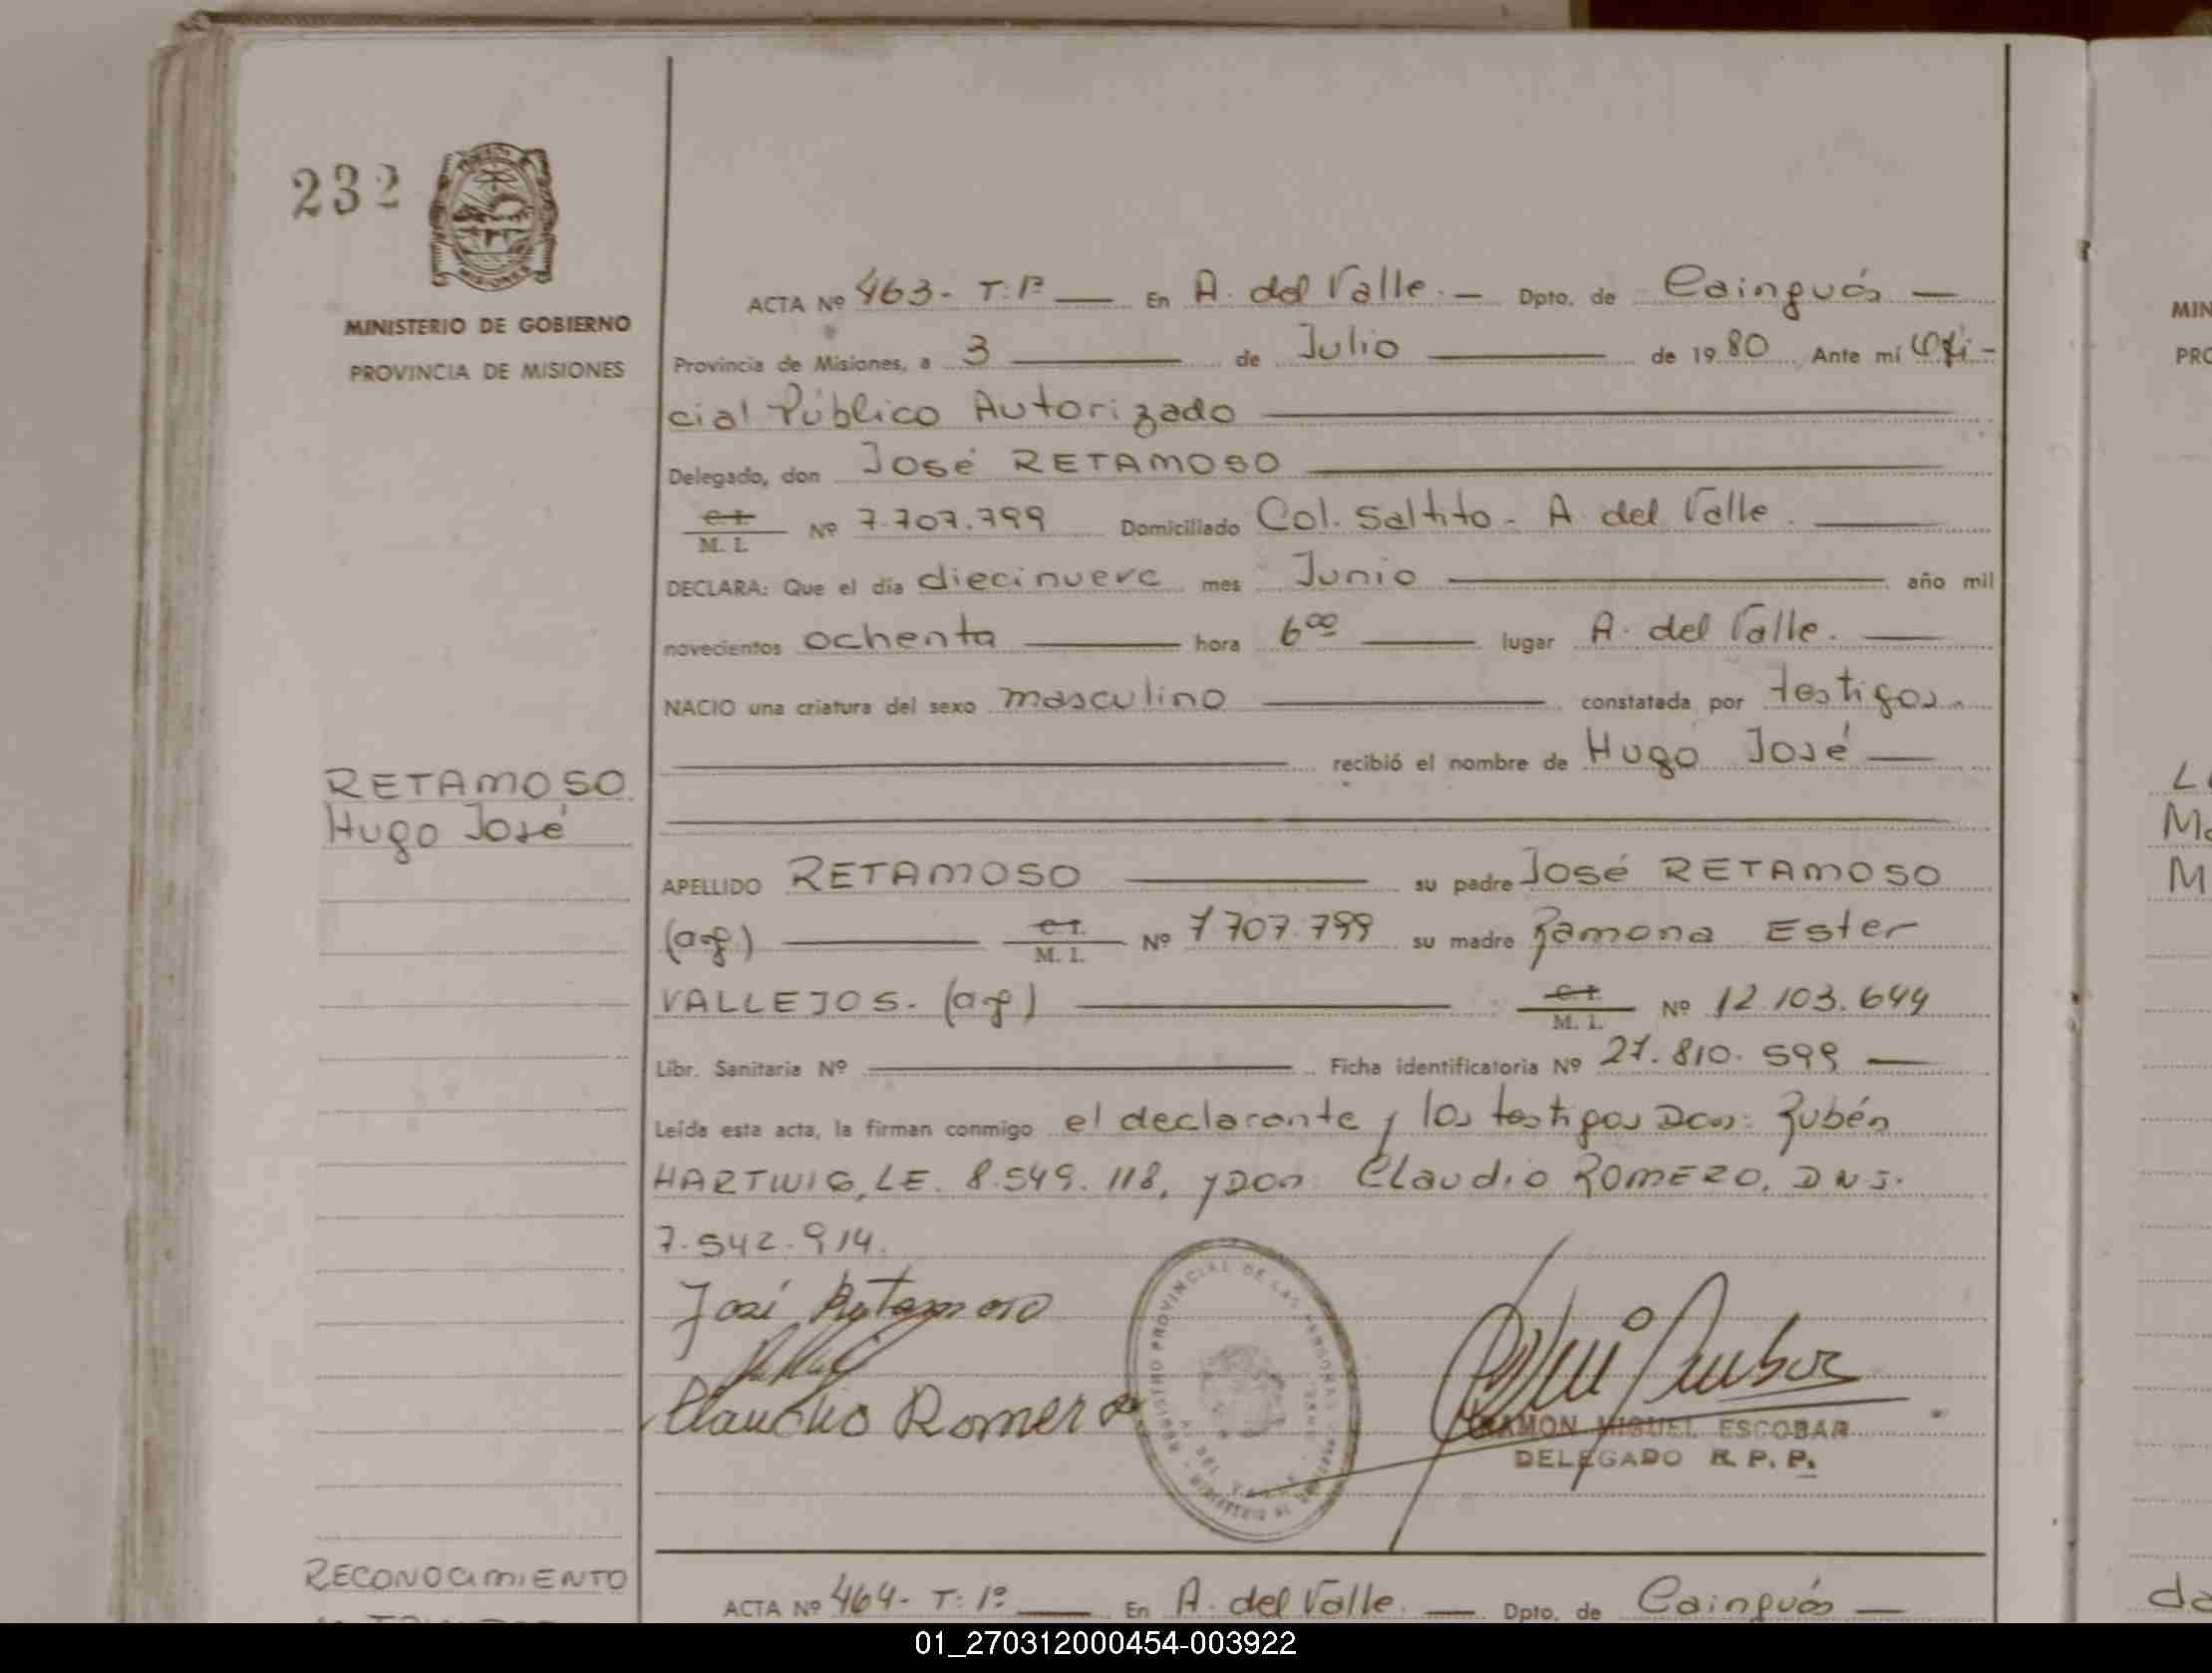 232
MINISTERIO DE GOBIERNO
PROVINCIA DE MISIONES
RETAMOSO
Hugo José
ACTA Nº 463- T: 1º En A. del Valle. Dpto. de Cainguás
Provincia de Misiones, a 3 de Julio de 1980 Ante mí Ofi-
cial Público Autorizado
Delegado, don José RETAMOSO
C.I. M. I. Nº 7.707.799 Domiciliado Col. Saltito - A. del Valle.
DECLARA: Que el día diecinueve mes Junio año mil
novecientos ochenta hora 6 00 lugar A. del Valle.
NACIO una criatura del sexo masculino constatada por testigos.
recibió el nombre de Hugo José
APELLIDO RETAMOSO su padre José RETAMOSO
(arg) C.I. M. I. Nº 7.707.799 su madre Ramona Ester
VALLEJOS. (arg) C.I. M. I. Nº 12.103.644
Libr. Sanitaria Nº Ficha identificatoria Nº 27.810.599
Leída esta acta, la firman conmigo el declarante y los testigos Don: Rubén
HARTWIG, LE. 8.549.118, y Don Claudio ROMERO, DNI.
7.542.914.
José Retamoso
Claudio Romero
REGISTRO PROVINCIAL DE LAS PERSONAS
RAMON MIGUEL ESCOBAR
DELEGADO R. P. P.
RECONOCIMIENTO
ACTA Nº 464- T: 1º En A. del Valle. Dpto. de Cainguás
MIN
PRO
01_270312000454-003922